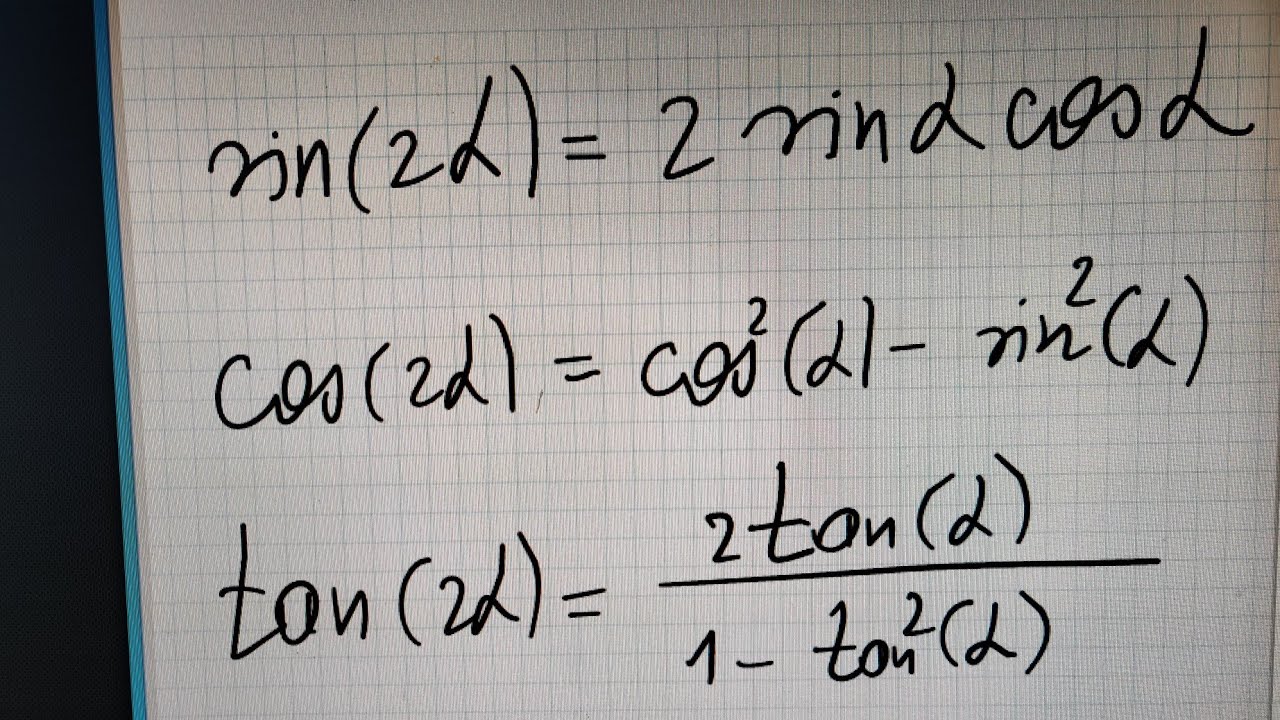 sin(2α) = 2 sin α cos α
cos(2α) = cos²(α) - sin²(α)
tan(2α) = 2 tan(α) / 1 - tan²(α)